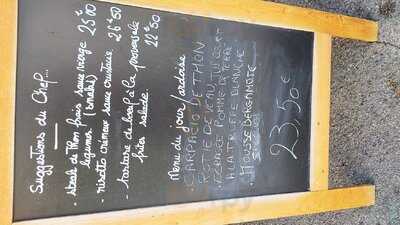 Suggestions du Chef...
. steak de Thon frais sauce vierge 25€00
légumes. (
. risotto crémeux sauce crustacé 26€50
. tartare de bœuf à la provençale 22€50
frites salade.
Menu du jour ardoise
. CARPACCIO DE THON
. ROTIE DE VEAU JUS CORSÉ ET
ECRASÉE POMME DE TERRE
A LA TRUFFE BLANCHE
. MOUSSE BERGAMOTE
23,50€